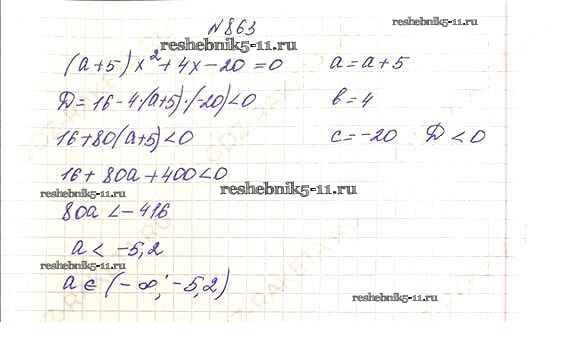 №863
reshebnik5-11.ru
reshebnik5-11.ru
(a+5)x²+4x-20=0 a=a+5
D=16-4·(a+5)·(-20)<0 b=4
16+80(a+5)<0 c=-20 D<0
16+80a+400<0
reshebnik5-11.ru
reshebnik5-11.ru
80a<-416
a<-5,2
reshebnik5-11.ru
a∈(-∞;-5,2)
reshebnik5-11.ru